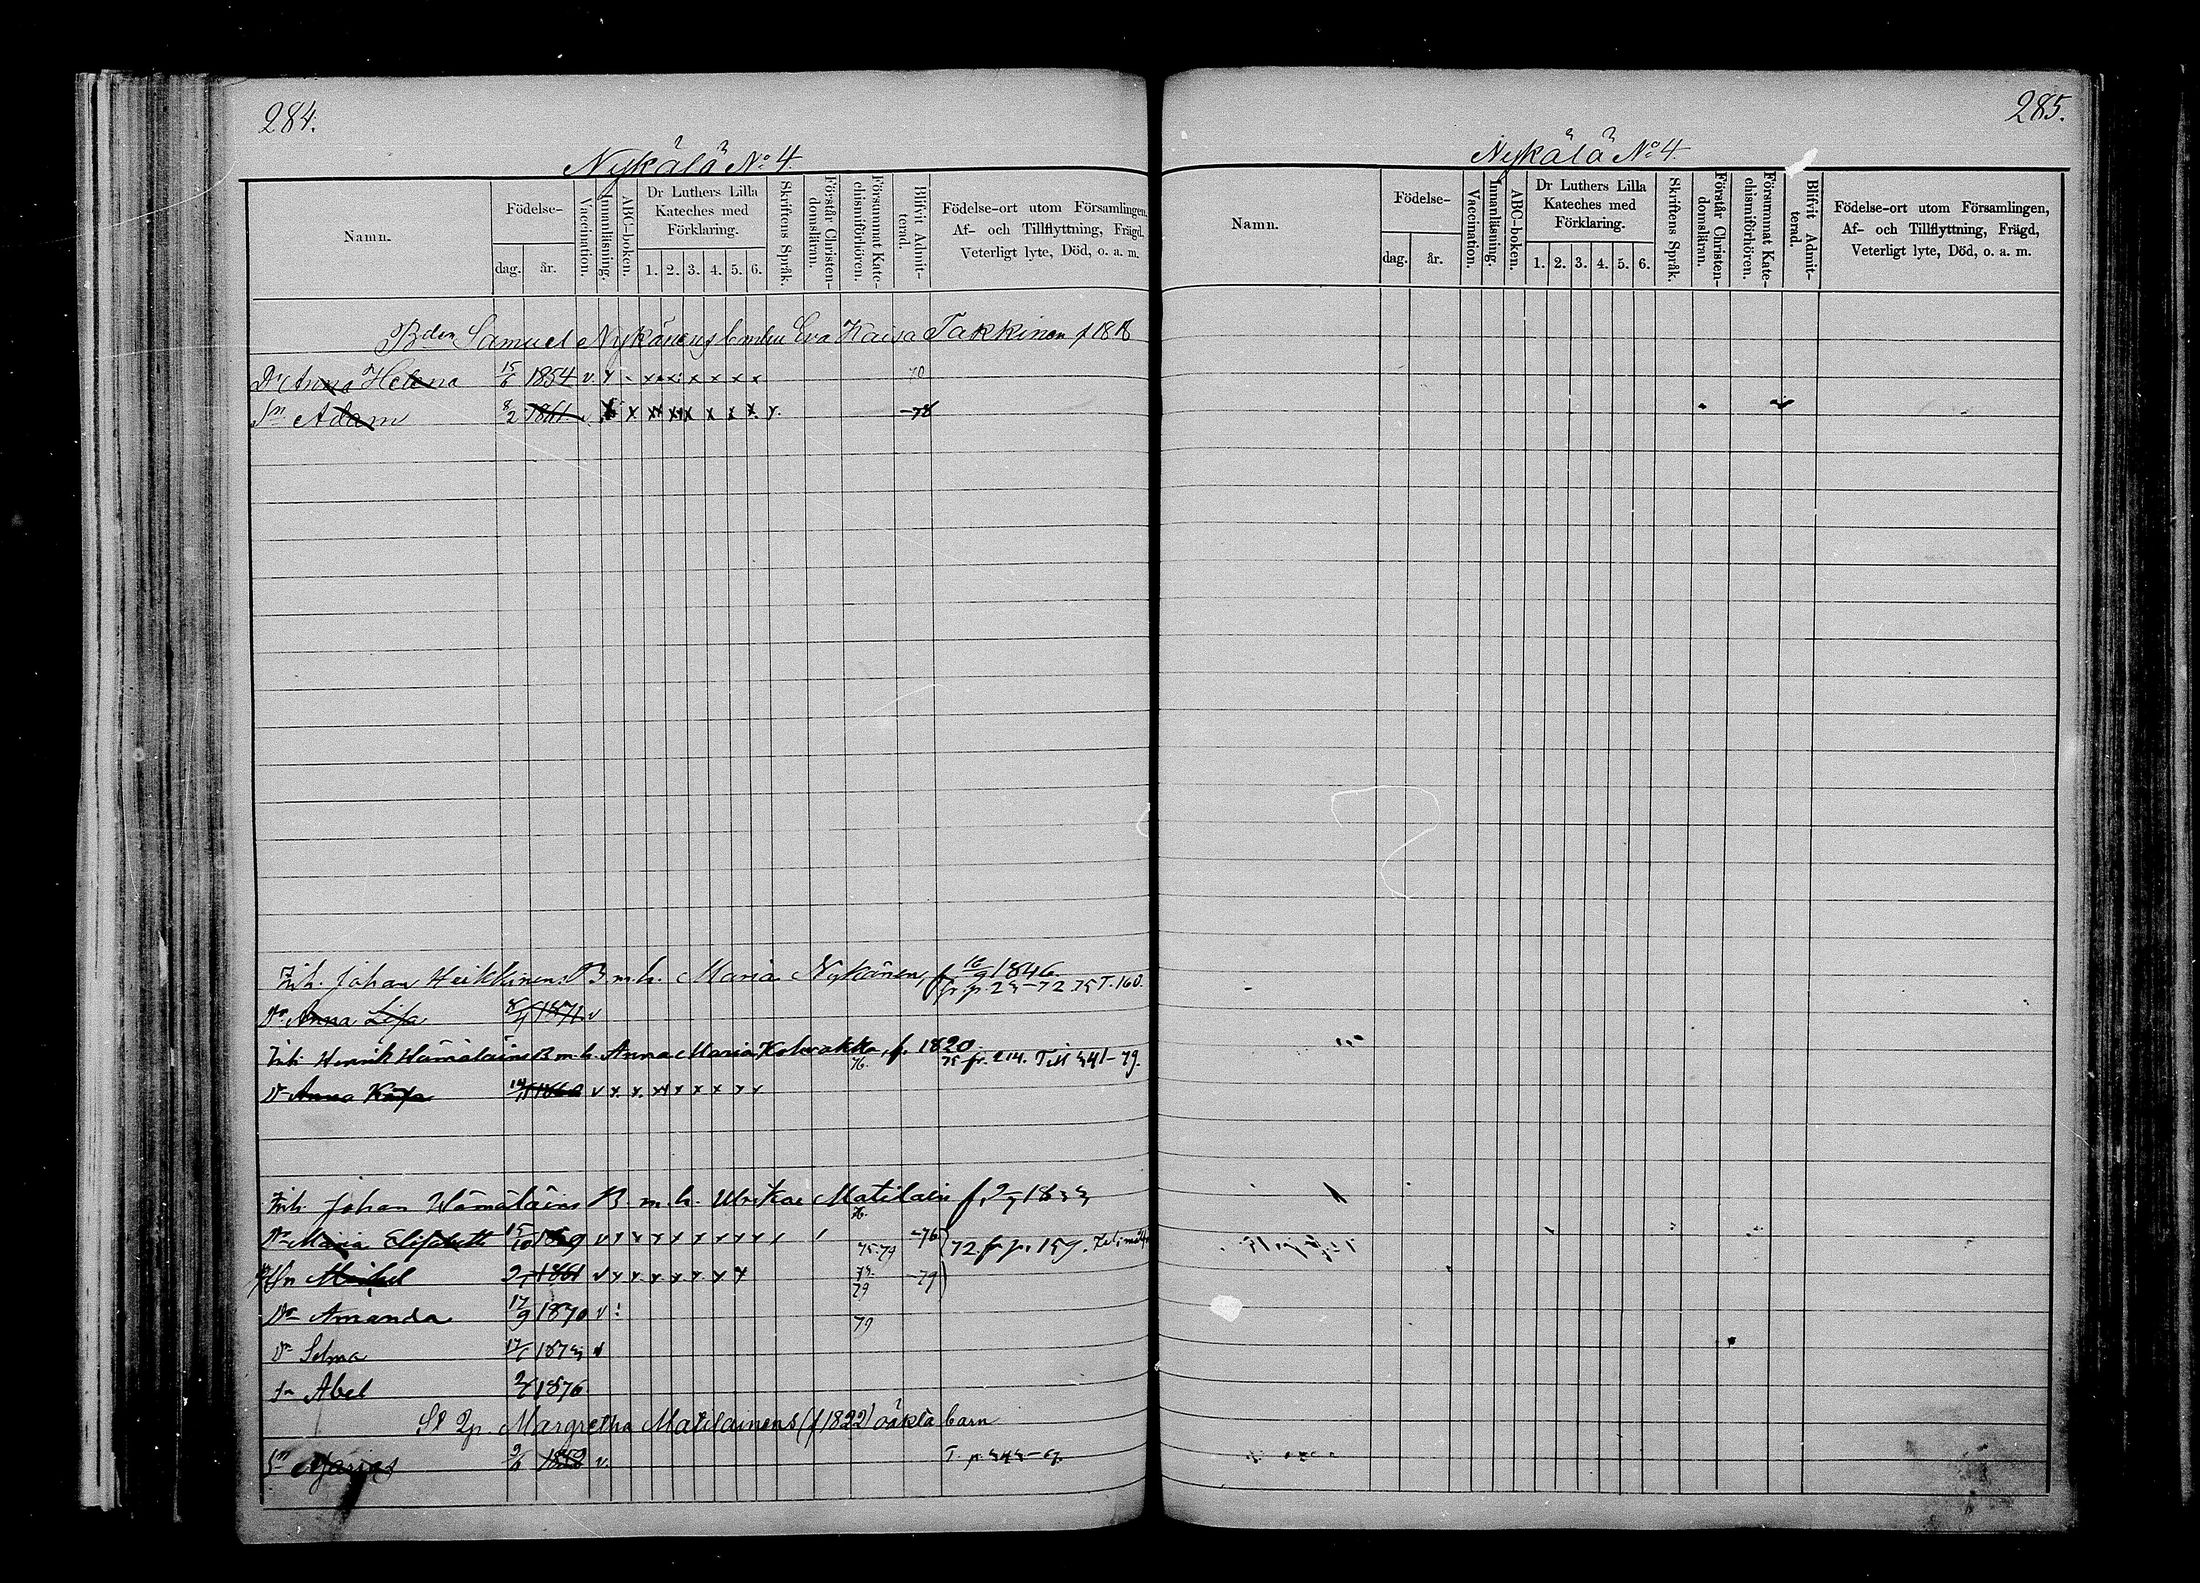 284.
Nykälä No 4.
Namn.
Födelse-
dag. år.
Vaccination.
Innanläsning.
ABC-boken.
Dr Luthers Lilla
Kateches med
Förklaring.
1. 2. 3. 4. 5. 6.
Skriftens Språk.
Förstår Christen-
domsläran.
Försummat Kate-
chismiförhören.
Blifvit Admit-
terad.
Födelse-ort utom Församlingen,
Af- och Tillflyttning, Frägd,
Veterligt lyte, Död, o. a. m.
Bden Samuel Nykänens Eva Kaisa Takkinen f 1818
Dr Anna Helena 15/6 1854 v. 70
Sn Adam 8/2 1861 -78
Inh. Johan Heikkinens B. m. h. Maria Nykänen, f. 16/9 1846.
fr. p. 23-72 75 T. 160.
Dr Anna Lisa 1871. v
Inh. Henrik Hämäläins B m. h. Anna Maria Kolvakka, f. 1820.
75 fr. 214. Till 341-79.
Dr Anna Kaisa 1860 v
Inh. Johan Hämäläins B. m. h. Ulrika Matilain f. 1833
Dr Maria Elisabeth 15/10 1859 v 75.79 -76 72. fr p. 159.
Sn Michel 1861 v 79 -79
Dr Amanda 17/9 1870 v 79
Dr Selma 1873 v
Sn Abel 1876
Margretha Matilainens (f 1822) oäkta barn
Sn 1852 v. T. p. 343
285.
Nykälä No 4.
Namn.
Födelse-
dag. år.
Vaccination.
Innanläsning.
ABC-boken.
Dr Luthers Lilla
Kateches med
Förklaring.
1. 2. 3. 4. 5. 6.
Skriftens Språk.
Förstår Christen-
domsläran.
Försummat Kate-
chismiförhören.
Blifvit Admit-
terad.
Födelse-ort utom Församlingen,
Af- och Tillflyttning, Frägd,
Veterligt lyte, Död, o. a. m.